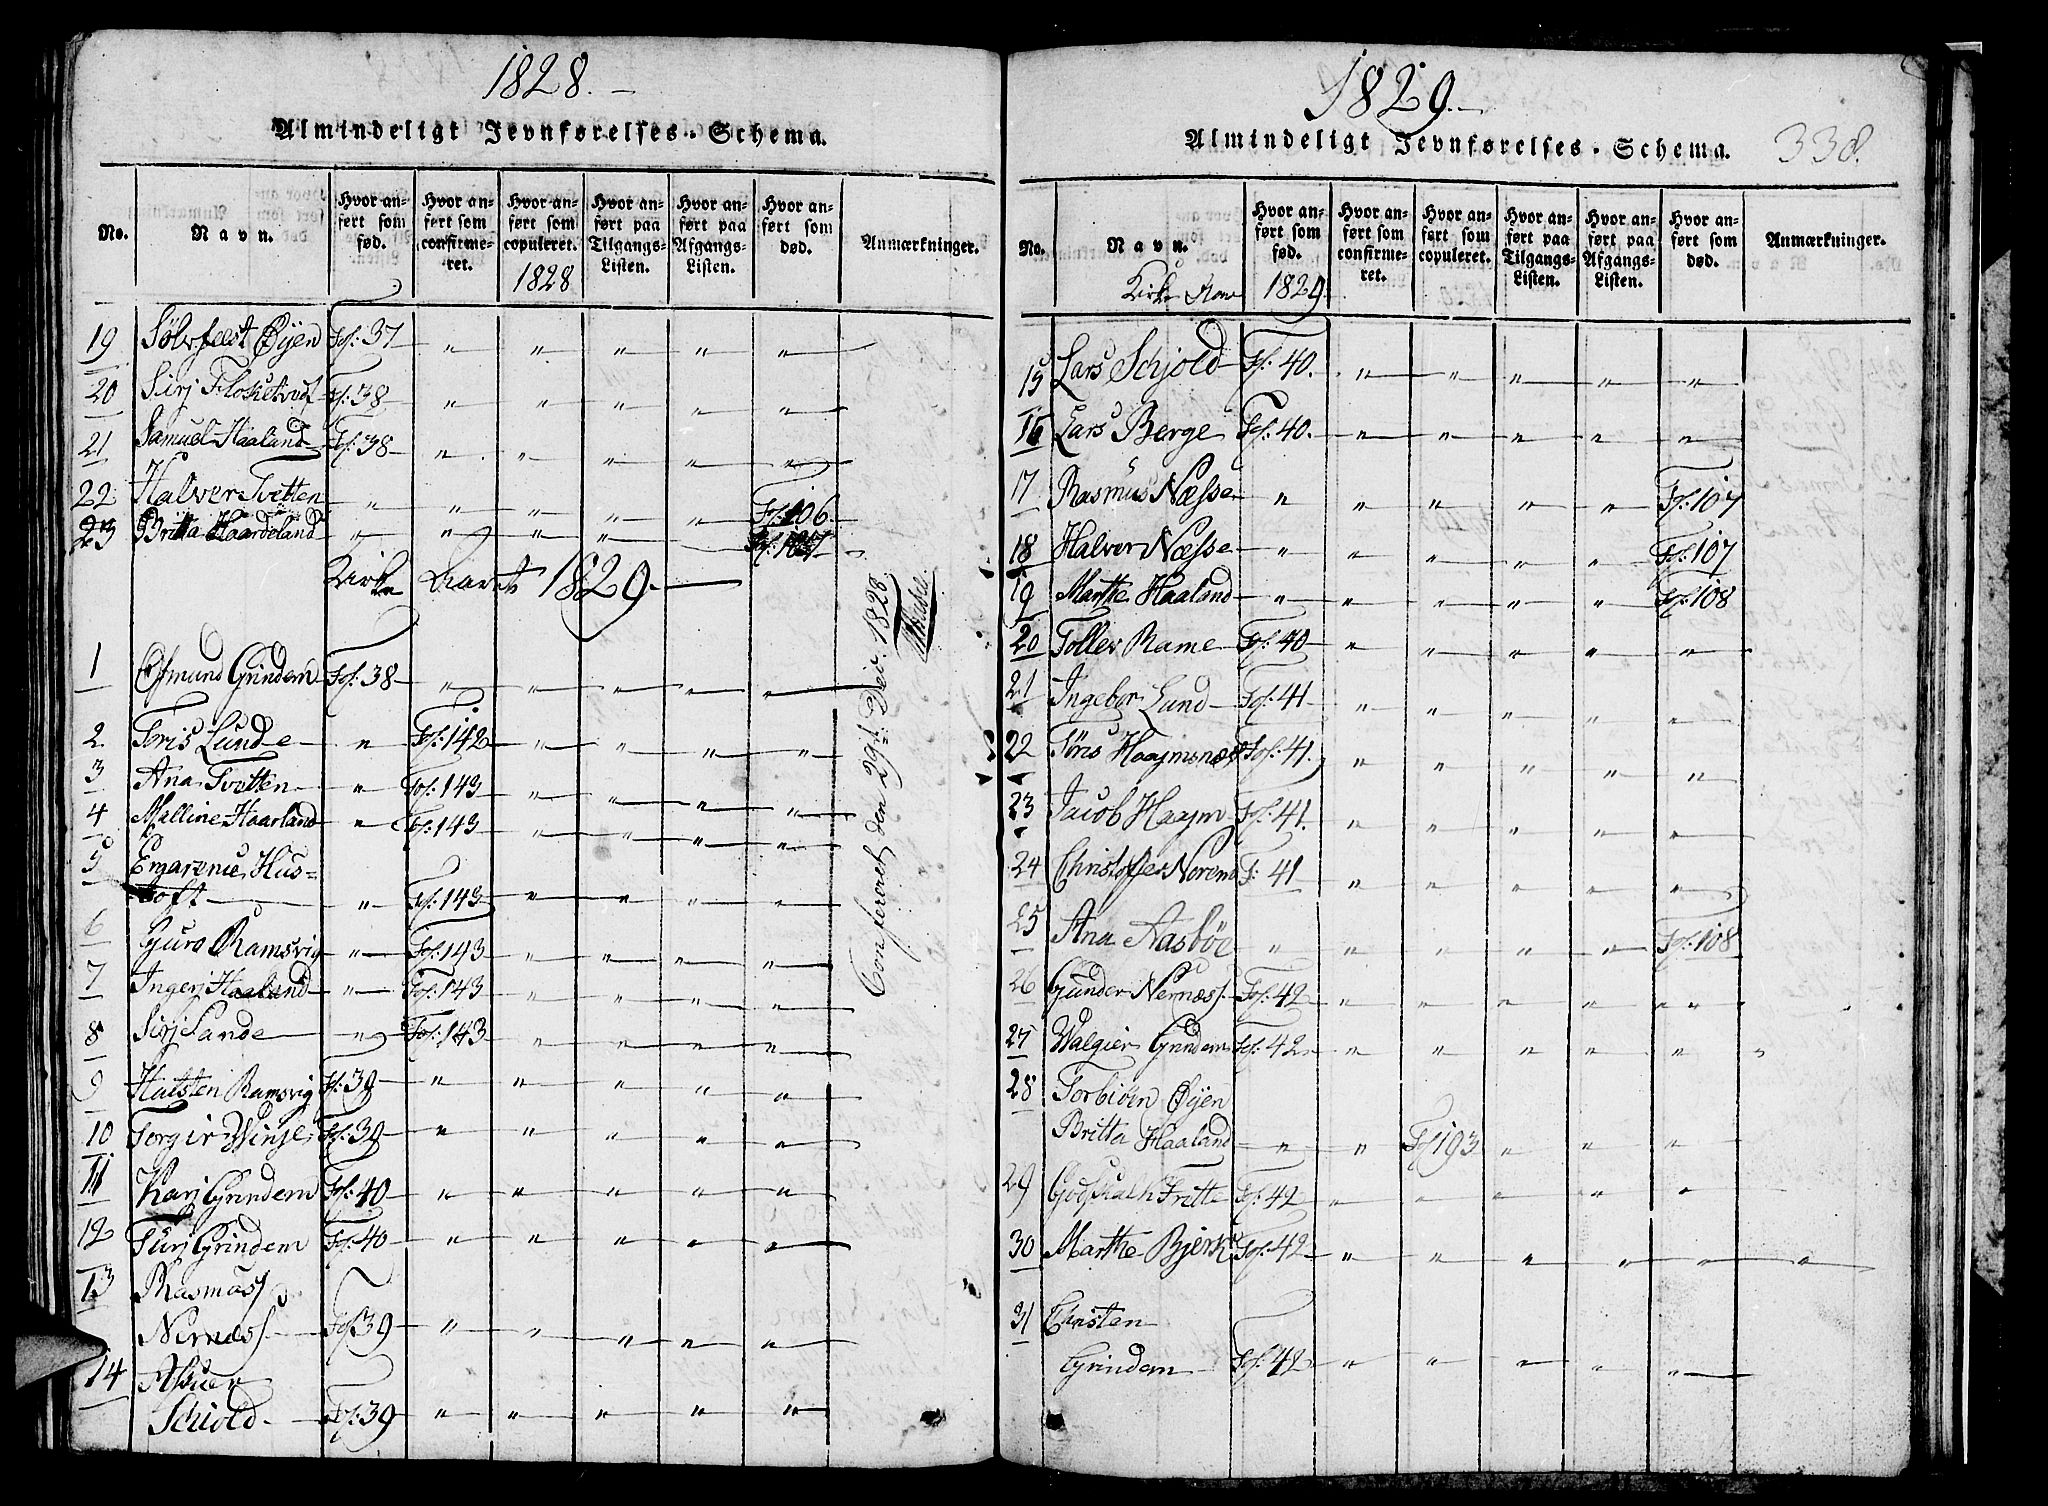 1828.
Almindeligt Jevnførelses-Schema.
No.
Navn.
Hvor anført som fød.
Hvor anført som confirmeret.
Hvor anført som copuleret.
1828
Hvor anført paa Tilgangs-Listen.
Hvor anført paa Afgangs-Listen.
Hvor anført som død.
Anmærkninger.
19 Sølvfæst Øÿen Fol: 37 " " " " "
20 Sirj Fol: 38 " " " " "
21 Samuel Haaland Fol: 38 " " " " "
22 Halver Tvetten " " " " " Fol: 106
23 Britta Haardeland " " " " Fol: 107
Kirke Aaret 1829.
1 Osmund Grindem Fol: 38 " " " " "
2 Toris Lunde " Fol: 142 " " " "
3 Ana Tvetten " Fol: 143 " " " "
4 Malline Haarland " Fol: 143 " " " "
5 Engarenie Hus=
toft " Fol: 143 " " " "
6 Guro Ramsvig " Fol: 143 " " " "
7 Ingerj Haaland " Fol: 143 " " " "
8 Sirj Sande " Fol: 143 " " " "
9 Halsten Ramsvig Fol: 39 " " " " "
10 Torgir Winje Fol: 39 " " " " "
11 Karj Grindem Fol: 40 " " " " "
12 Turj Grindem Fol: 40 " " " " "
13 Rasmus
Nernæss Fol: 39 " " " " "
14 Assuer
Schiold Fol: 39 " " " " "
Confereret den 29d Decr 1828.
1829.
338.
Almindeligt Jevnførelses-Schema.
No.
Navn.
Kirke Aaret
Hvor anført som fød.
1829.
Hvor anført som confirmeret.
Hvor anført som copuleret.
Hvor anført paa Tilgangs-Listen.
Hvor anført paa Afgangs-Listen.
Hvor anført som død.
Anmærkninger.
15 Lars Schjold Fol: 40. " " " " "
16 Lars Berge Fol: 40. " " " " "
17 Rasmus Næsse " " " " " Fol: 107
18 Halver Næsse " " " " " Fol: 107
19 Marthe Haaland " " " " " Fol: 108
20 Tollev Rame Fol: 40 " " " " "
21 Ingebor Lund Fol: 41 " " " " "
22 Tøris Haajmsnæs Fol: 41. " " " " "
23 Jacob Haajm Fol: 41. " " " " "
24 Christoffer Norem F: 41 " " " " "
25 Ana Aasbøe " " " " " Fol: 108
26 Gunder Nernæss Fol: 42 " " " " "
27 Walgier Grindem Fol: 42 " " " " "
28 Torbiørn Øÿen
Britta Haaland " " Fol 193 " " "
29 Godskalk Tvette Fol: 42 " " " " "
30 Marthe Bjerk Fol: 42 " " " " " "
31 Christen
Grindem Fol: 42 " " " " "